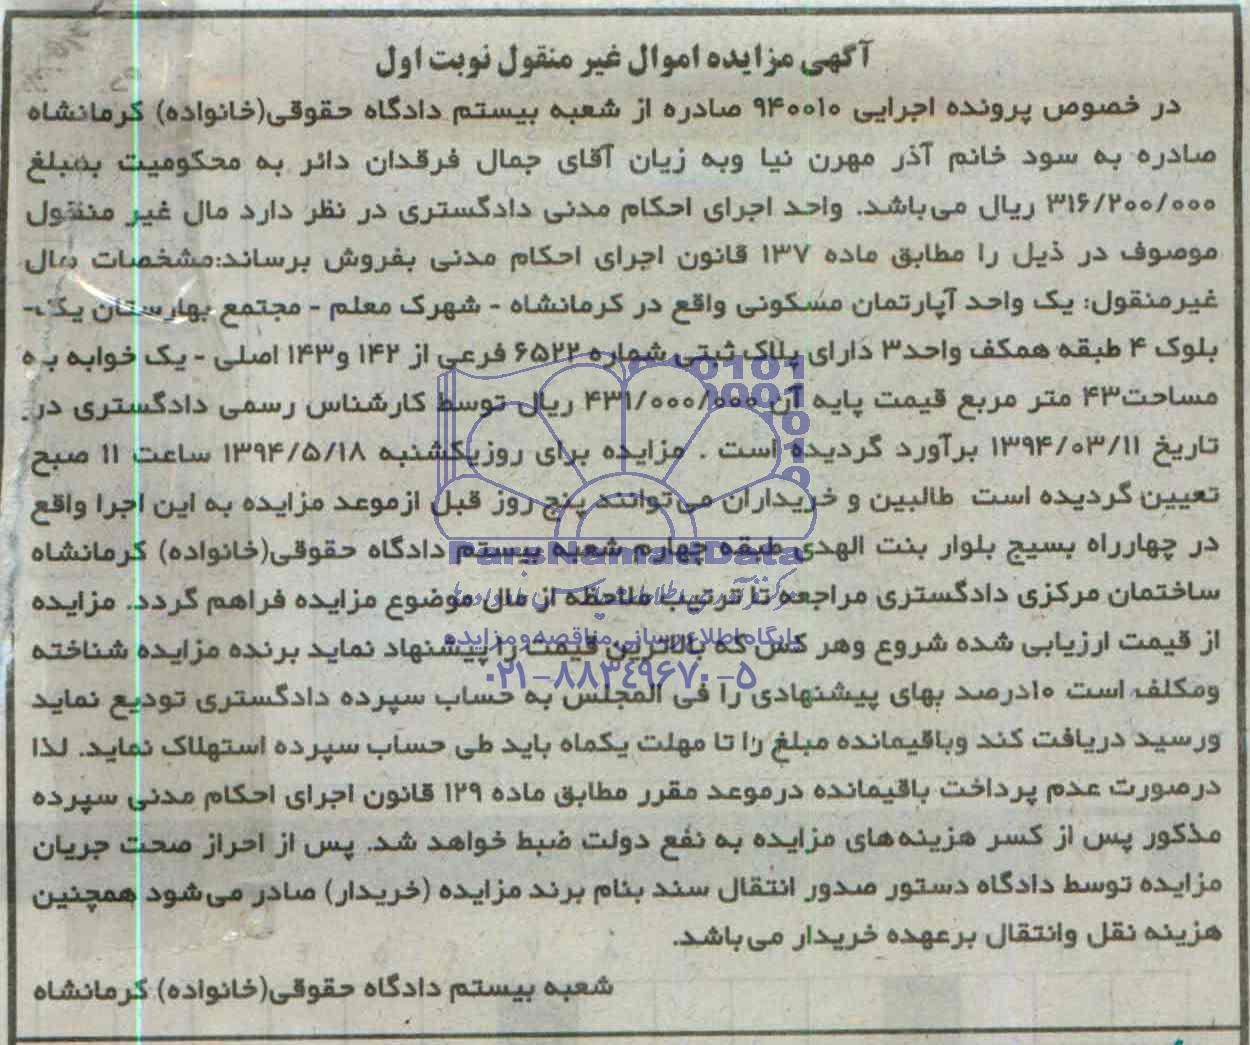 آگهی مزایده اموال غیر منقول نوبت اول
در خصوص پرونده اجرایی ۹۴۰۰۱۰ صادره از شعبه بیستم دادگاه حقوقی(خانواده) کرمانشاه
صادره به سود خانم آذر مهرن نیا وبه زیان آقای جمال فرقدان دائر به محکومیت بمبلغ
۳۱۶/۲۰۰/۰۰۰ ریال می‌باشد. واحد اجرای احکام مدنی دادگستری در نظر دارد مال غیر منقول
موصوف در ذیل را مطابق ماده ۱۳۷ قانون اجرای احکام مدنی بفروش برساند:مشخصات مال
غیرمنقول: یک واحد آپارتمان مسکونی واقع در کرمانشاه - شهرک معلم - مجتمع بهارستان یک-
بلوک ۴ طبقه همکف واحد۳ دارای پلاک ثبتی شماره ۶۵۲۲ فرعی از ۱۴۲ و۱۴۳ اصلی - یک خوابه به
مساحت۴۳ متر مربع قیمت پایه آن ۴۳۱/۰۰۰/۰۰۰ ریال توسط کارشناس رسمی دادگستری در
تاریخ ۱۳۹۴/۰۳/۱۱ برآورد گردیده است . مزایده برای روزیکشنبه ۱۳۹۴/۵/۱۸ ساعت ۱۱ صبح
تعیین گردیده است طالبین و خریداران می‌توانند پنج روز قبل ازموعد مزایده به این اجرا واقع
در چهارراه بسیج بلوار بنت الهدی طبقه چهارم شعبه بیستم دادگاه حقوقی(خانواده) کرمانشاه
ساختمان مرکزی دادگستری مراجعه تا ترتیب ملاحظه از مال موضوع مزایده فراهم گردد. مزایده
از قیمت ارزیابی شده شروع وهر کس که بالاترین قیمت را پیشنهاد نماید برنده مزایده شناخته
ومکلف است ۱۰درصد بهای پیشنهادی را فی المجلس به حساب سپرده دادگستری تودیع نماید
ورسید دریافت کند وباقیمانده مبلغ را تا مهلت یکماه باید طی حساب سپرده استهلاک نماید. لذا
درصورت عدم پرداخت باقیمانده درموعد مقرر مطابق ماده ۱۲۹ قانون اجرای احکام مدنی سپرده
مذکور پس از کسر هزینه‌های مزایده به نفع دولت ضبط خواهد شد. پس از احراز صحت جریان
مزایده توسط دادگاه دستور صدور انتقال سند بنام برند مزایده (خریدار) صادر می‌شود همچنین
هزینه نقل وانتقال برعهده خریدار می‌باشد.
شعبه بیستم دادگاه حقوقی(خانواده) کرمانشاه
ParsNamadData
پایگاه اطلاع رسانی مناقصه و مزایده
۰۲۱-۸۸۳۴۹۶۷۰-۵